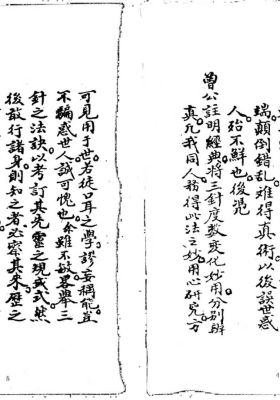 端顛倒錯乱难得真術以後誤世惑
人殆不鮮也後凴
曾公註明經典將三針度数变化妙用分别辨
真凢我同人務得此法之妙用心研究方
可見用于世若徒口耳之學謬妄稱能豈
不騙惑世人誠可愧也余雖不敏畧舉三
針之法訣以考訂其先靈之現或式然
後敢行諸身則知之者必察其来歷之